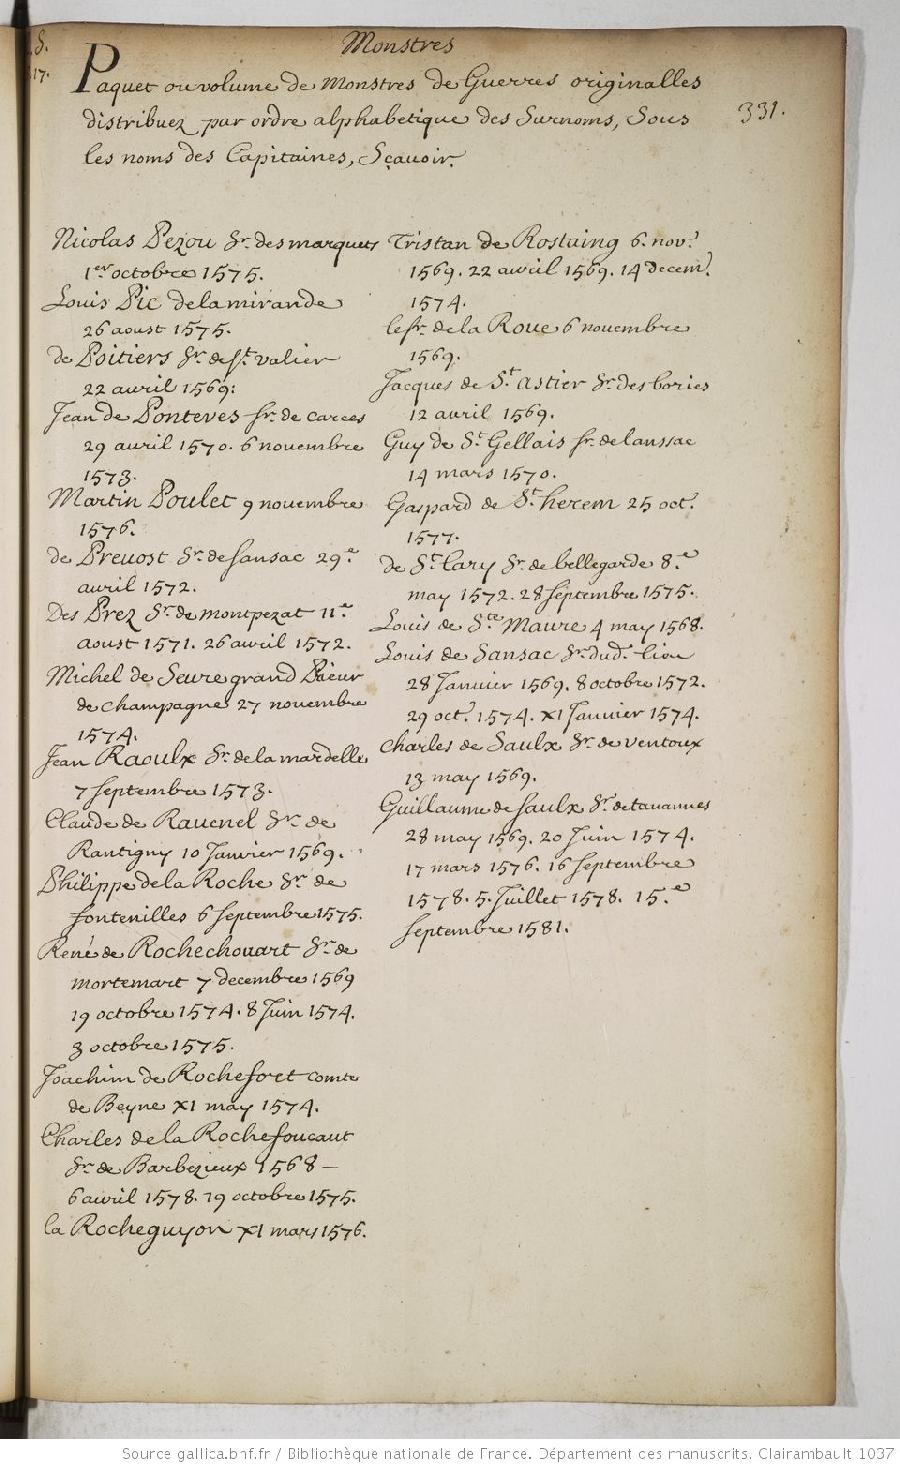 Monstres
Paquet ou volume de Monstres de Guerres originalles
distribuez par ordre alphabetique des Surnoms, Sous
les noms des Capitaines, Sçavoir.
331.
Nicolas Pezou Sr. des marquets
1er octobre 1575.
Louis Pic delamirande
26 aoust 1575.
de Poitiers Sr. de St. valier
22 avril 1569.
Jean de Ponteves Sr. de carces
29 avril 1570. 6 novembre
1573.
Martin Poulet 9 novembre
1576.
de Prevost Sr. de Sansac 29e
avril 1572.
Des Prez Sr. de montpezat 11e
aoust 1571. 26 avril 1572.
Michel de Seure grand Prieur
de champagne 27 novembre
1574.
Jean Raoulx Sr. de la mardelle
7 Septembre 1573.
Claude de Ravenel Sr. de
Rantigny 10 Janvier 1569.
Philippe de la Roche Sr. de
fontenilles 6 Septembre 1575.
René de Rochechouart Sr. de
mortemart 7 decembre 1569
19 octobre 1574. 8 Juin 1574.
3 octobre 1575.
Joachim de Rochefort comte
de Beyne XI may 1574.
Charles de la Rochefoucaut
Sr. de Barbezieux 1568 —
6 avril 1578. 19 octobre 1575.
la Rocheguyon XI mars 1576.
Tristan de Rostaing 6. nov.
1569. 22 avril 1569. 14 decem.
1574.
le Sr. de la Roue 6 novembre
1569.
Jacques de St. Astier Sr. des bories
12 avril 1569.
Guy de St. Gellais Sr. de lanssac
14 mars 1570.
Gaspard de St. herem 25 oct.
1577.
de St. Lary Sr. de bellegarde 8.e
may 1572. 28 Septembre 1575.
Louis de Ste Maure 4 may 1568.
Louis de Sansac Sr. dud. lieu
28 Janvier 1569. 8 octobre 1572.
29 oct. 1574. XI Janvier 1574.
Charles de Saulx Sr. de ventoux
13 may 1569.
Guillaume de Saulx Sr. de tavannes
28 may 1569. 20 Juin 1574.
17 mars 1576. 16 Septembre
1578. 5. Juillet 1578. 15.e
Septembre 1581.
Source gallica.bnf.fr / Bibliothèque nationale de France. Département des manuscrits. Clairambault 1037